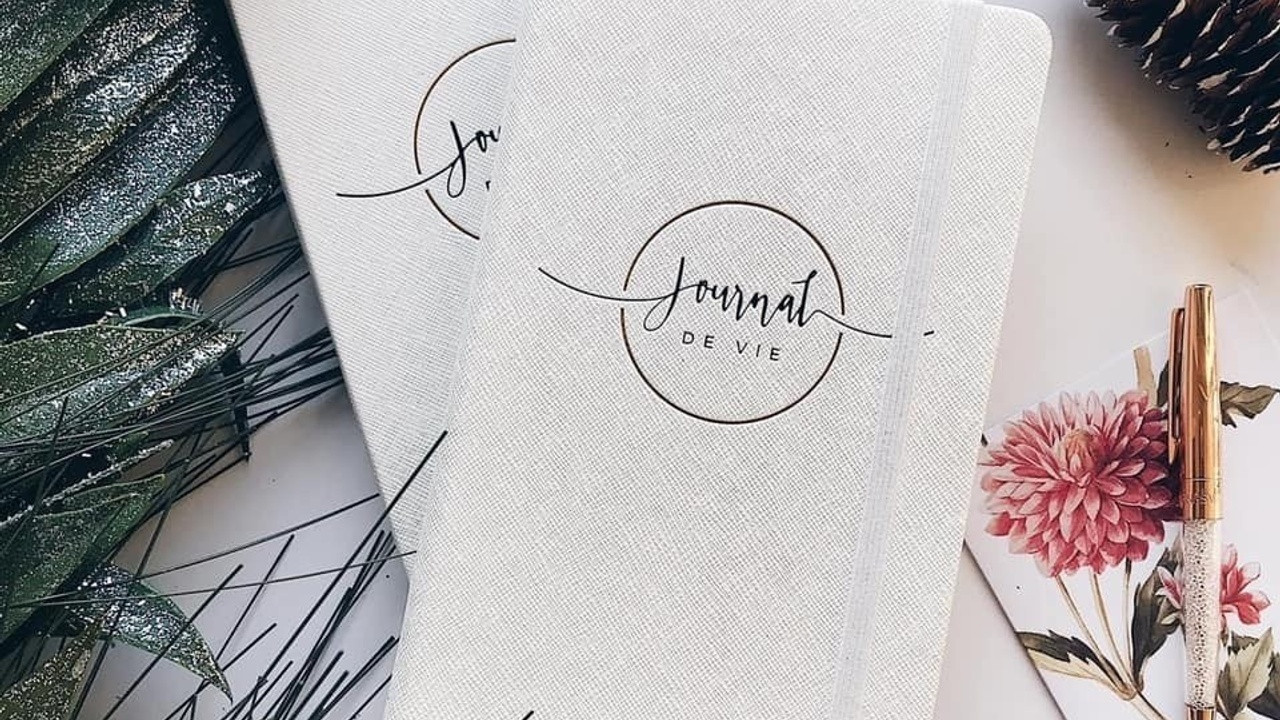 Jou
Journal
DE VIE